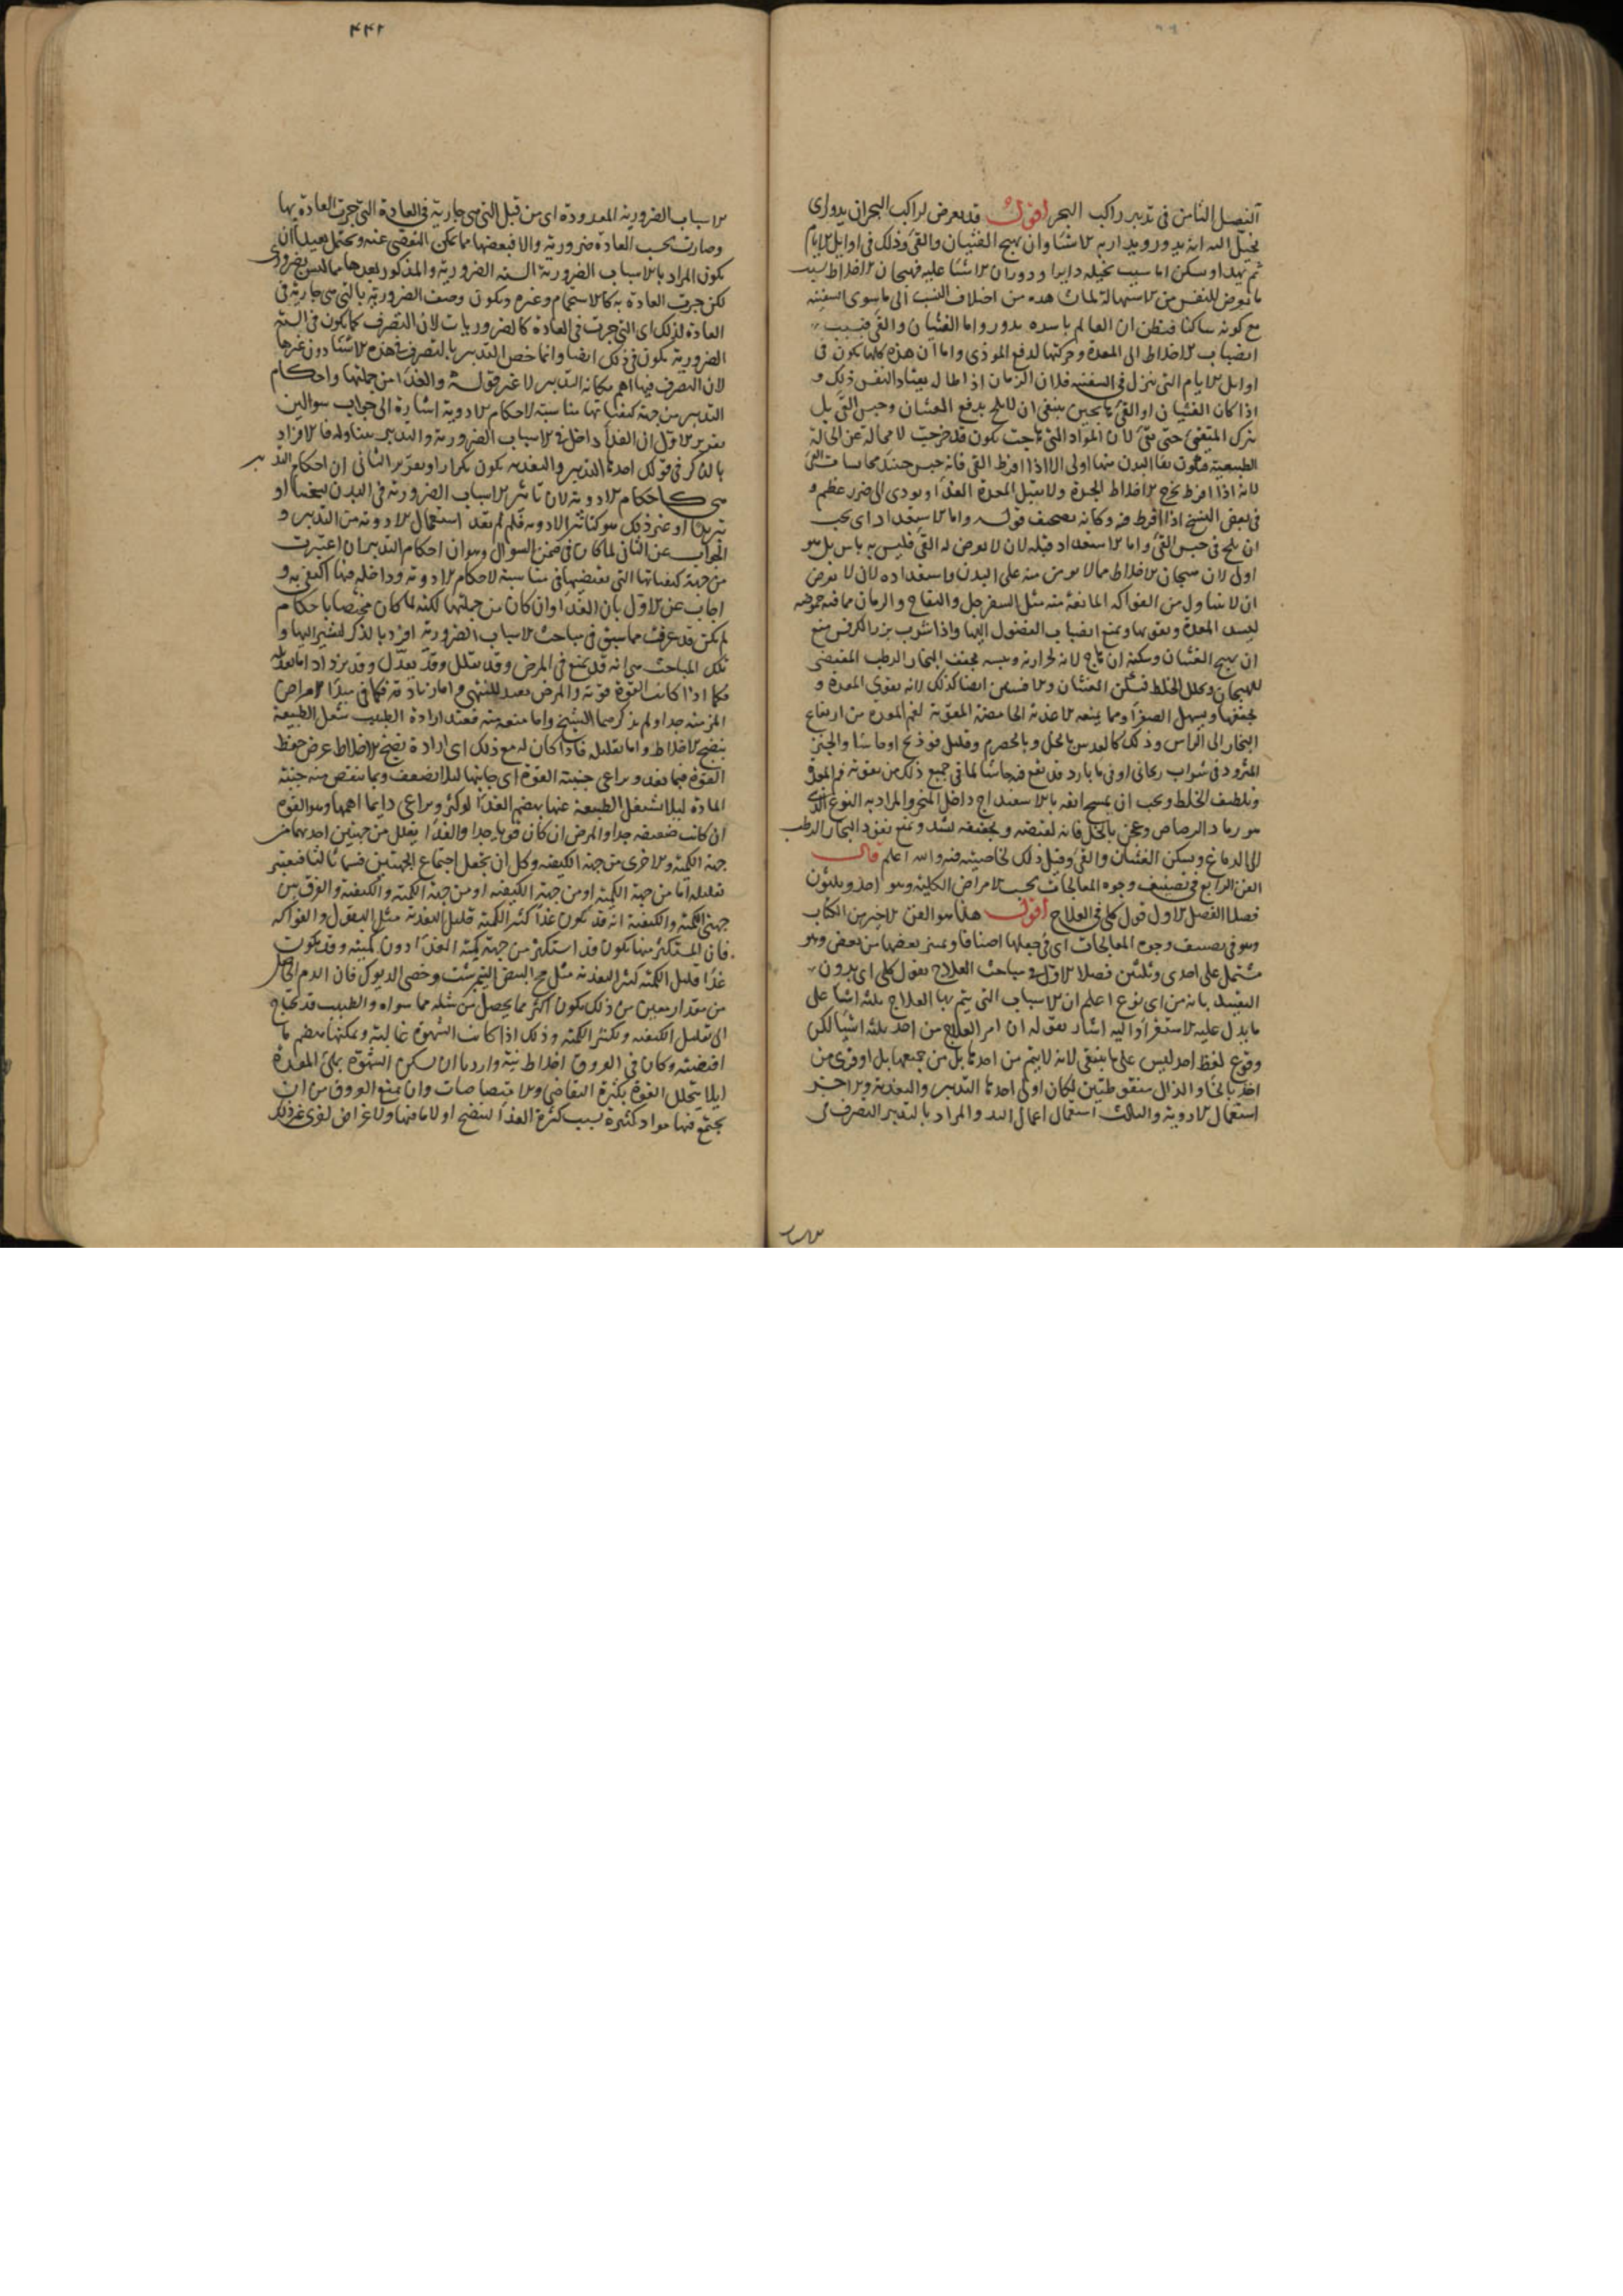 الفصل الثامن فى تدبير راكب البحر اقول قد يعرض لراكب البحر ان يدور اى
يخيل اليه انه يدور ويدار به الاشيا وان يهيج الغثيان والقى وذلك فى اوايل الايام
ثم يهدا ويسكن اما سبب تخيله دايرا ودوران الاشيا عليه فهيجان الاخلاط بسبب
ما يعرض للنفس من الاستهالة لما شاهده من اختلاف النسب الى ما سوى السفينه
مع كونه ساكنا فيظن ان العالم باسره يدور واما الغثيان والقى فبسبب
انصباب الاخلاط الى المعدة وحركتها لدفع الموذى واما ان هذه كلها يكون فى
اوايل الايام التى ينزل فى السفينه فلان الزمان اذا طال يعتاد النفس ذلك و
اذا كان الغثيان او القى هايجين ينبغى ان لا يلح بدفع الغثيان وحبس القى بل
يترك المتقيئ حتى يقئ لان المواد التى هاجت يكون قد خرجت لا محالة عن الحالة
الطبيعية فيكون نقا البدن منها اولى الا اذا افرط القى فانه حبس حينئذ بحابسات القى
لانه اذا افرط يخرج الاخلاط الجيدة ولا يقبل المعدة الغذا ويودى الى ضرر عظيم و
فى بعض النسخ اذا افرط فيه وكانه تصحيف قوله واما الاستعداد اى يجب
ان يلح فى حبس القى واما الاستعداد قبله لان لا يعرض له القى فليس به باس بل هو
اولى لان هيجان الاخلاط مما لا يومن منه على البدن واستعداده لان لا يعرض
ان لا يتناول من الفواكه المانعة منه مثل السفرجل والتفاح والرمان مما فيه حموضه
ليسد المعدة ويقويها ويمنع انصباب الفضول اليها واذا شرب بزر الكرفس منع
ان يهيج الغثيان وسكنه ان هاج لانه لحرارته ويبسه يجفف البخار الرطب المقتضى
للهيجان ويحلل الخلط فيسكن الغثيان والافسنتين ايضا كذلك لانه يقوى المعدة و
يجففها ويسهل الصفرا ومما يمنعه الاغذية الحامضة المقوية لفم المعدة من ارتفاع
البخار الى الراس وذلك كالعدس بالخل وبالحصرم وقليل فوذنج او حاشا والخبز
المثرود فى شراب ريحانى او فى ما بارد قد نقع فيه حاشا لما فى جميع ذلك من تقوية فم المعدة
وتلطيف الخلط ويجب ان يمسح انفه بالاسفيداج داخل المنخر والمراد به النوع الذى
هو رماد الرصاص وعجن بالخل فانه لقبضه وتجفيفه يسد ويمنع نفوذ البخار الرطب
الى الدماغ ويسكن الغثيان والقى وقيل ذلك لخاصيته فيه والله اعلم قال
الفن الرابع فى تصنيف وجوه المعالجات بحسب الامراض الكلية وهو احد وثلثون
فصلا الفصل الاول قول كلى فى العلاج اقول هذا هو الفن الاخير من الكتاب
وهو فى تصنيف وجوه المعالجات اى فى جعلها اصنافا وتميز بعضها من بعض وهو
مشتمل على احدى وثلثين فصلا الاول فى مباحث العلاج بقول كلى اى بدون
التقييد بانه من اى نوع اعلم ان الاسباب التى يتم بها العلاج ثلثه اشيا على
ما يدل عليه الاستقرا واليه اشار بقوله ان امر العلاج من احد ثلثه اشيا لكن
وقوع لفظ احد ليس على ما ينبغى لانه لا يتم من احدها بل من جميعها بل لو قرى من
اخذ بالخا والذال منقوطتين لكان اولى احدها التدبير والتغذية والاخر
استعمال الادوية والثالث استعمال اعمال اليد والمراد بالتدبير التصرف فى
الاسباب
۴۴۲
الاسباب الضرورية المعدودة اى من قبل التى هى جارية فى العادة التى جرت العادة بها
وصارت بحسب العادة ضرورية والا فبعضها مما يمكن التفصى عنه ويحتمل بعيدا ان
يكون المراد بالاسباب الضرورية السته الضرورية والمذكور بعدها ما ليس بضرورى
لكن جرت العادة به كالاستحمام وغيره ويكون وصف الضرورية بالتى هى جارية فى
العادة لذلك اى التى جرت فى العادة كالضروريات لان التصرف كما يكون فى السته
الضرورية يكون فى ذلك ايضا وانما خص التدبير بالتصرف فى هذه الاشيا دون غيرها
لان التصرف فيها اهم مكانه التدبير لا غير قوله والغذا من جملتها واحكام
التدبير من جهة كيفياتها مناسبة لاحكام الادوية اشارة الى جواب سوالين
تقرير الاول ان الغذا داخل فى الاسباب الضرورية والتدبير يتناوله فالافراد
بالذكر فى قولك احدها التدبير والتغذية يكون تكرارا وتقرير الثانى ان احكام التدبير
هى كاحكام الادوية لان تاثير الاسباب الضرورية فى البدن تسخينا او
تبريدا او غير ذلك هو كتاثير الادوية فلم لم يعد استعمال الادوية من التدبير و
الجواب عن الثانى لما كان فى ضمن السوال وهو ان احكام التدبير ان اعتبرت
من جهة كيفياتها التى تقتضيها فى مناسبة لاحكام الادوية وداخله فيها اكتفى به و
اجاب عن الاول بان الغذا وان كان من جملتها لكنه لما كان مختصا باحكام
لم يكن قد عرفت مما سبق فى مباحث الاسباب الضرورية افرد بالذكر ليشير اليها و
تلك المباحث هى انه قد يمنع فى المرض وقد يقلل وقد يعدل وقد يزداد اما منعه
فكما اذا كانت القوة قوية والمرض بعيد المنتهى واما زيادته فكما فى مبدا الامراض
المزمنه جدا ولم يذكرهما الشيخ واما منعه منه فعند ارادة الطبيب شغل الطبيعة
بنضج الاخلاط واما تقليله فاذا كان له مع ذلك اى ارادة نضج الاخلاط غرض حفظ
القوة فيما يغذو يراعى جنبة القوة اى جانبها ليلا يضعف وبما ينقص منه جنبة
المادة ليلا تشتغل الطبيعة عنها بهضم الغذا لو كثر ويراعى دايما اهمها وهو القوة
ان كانت ضعيفه جدا والمرض ان كان قويا جدا والغذا يقلل من جهتين احدهما من
جهة الكمية والاخرى من جهة الكيفية ولك ان تجعل اجتماع الجهتين قسما ثالثا فيعتبر
تقليله اما من جهة الكمية او من جهة الكيفية او من جهة الكمية والكيفية والفرق بين
جهتى الكمية والكيفية انه قد يكون غذا كثير الكمية قليل التغذية مثل البقول والفواكه
فان المستكثر منها يكون قد استكثر من جهة كمية الغذا دون كيفيته وقد يكون
غذا قليل الكمية كثير التغذية مثل مح البيض النيمبرشت وخصى الديوك فان الدم الحاصل
من مقدار معين من ذلك يكون اكثر مما يحصل من مثله مما سواه والطبيب قد يحتاج
الى تقليل الكيفية وتكثير الكمية وذلك اذا كانت الشهوة غالبة ويمكنها هضم ما
اقتضته وكان فى العروق اخلاط نية واردنا ان نسكن الشهوة بملئ المعدة
ليلا يتحلل القوة بكثرة التقاضى والامتصاصات وان نمنع العروق من ان
يجتمع فيها مواد كثيرة بسبب كثرة الغذا لينضج اولا ما فيها ولاغراض اخرى غير ذلك